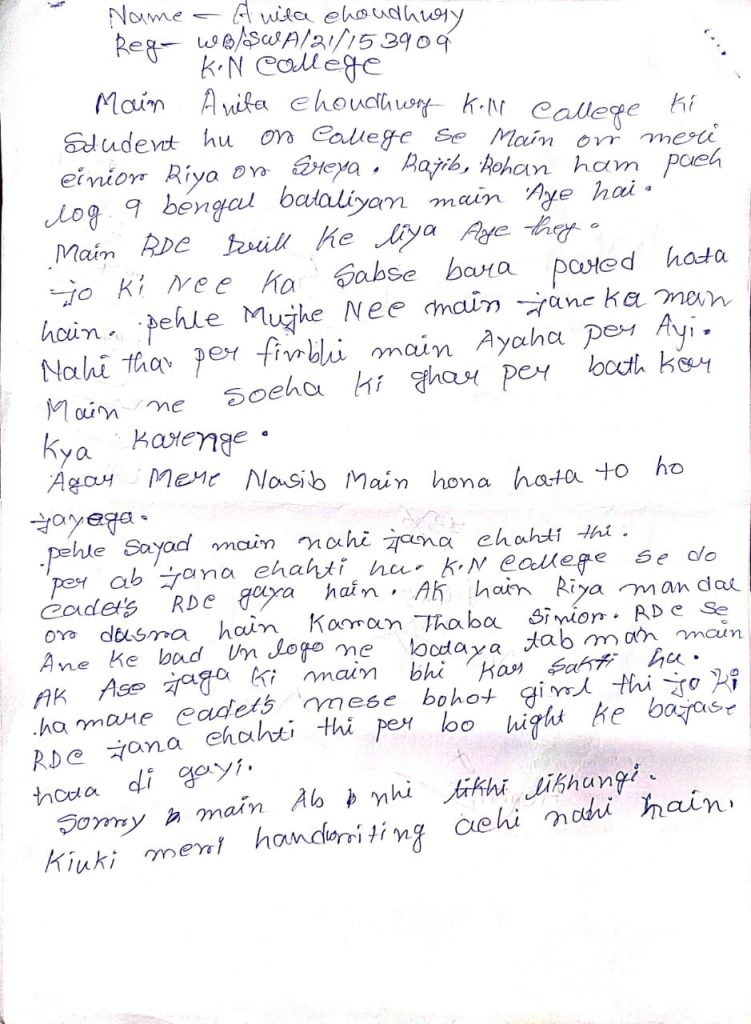 Name - Anita choudhury
Reg- WB/SWA/21/153909
K.N College
Main Anita choudhury K.N College Ki
Student hu or College se Main or meri
einior Riya or Sreya. Rajib, Rohan ham pach
log 9 bengal bataliyan main Aye hai.
Main RDC Drill Ke liya Aye they.
jo Ki Ncc Ka Sabse bara pared hota
hain. pehle Mujhe Ncc main jane ka man
Nahi tha per firbhi main Ayaha per Ayi.
Main ne socha Ki ghar per bath kar
Kya Karenge.
Agar Mere Nasib Main hona hata to ho
jayega.
pehle Sayad main nahi jana chahti thi.
per ab jana chahti hu. K.N College se do
cadets RDC gaya hain. AK hain Riya mandal
or dusra hain Karran Thaba Sinior. RDC se
Ane Ke bad Un logo ne bataya tab man main
AK Ase jaga Ki main bhi Kar Sakti hu.
hamare cadets mese bohot girl thi jo Ki
RDC jana chahti thi per bo hight Ke bajase
hata di gayi.
Sorry main Ab nhi likhi likhungi.
Kiuki meri handwriting achi nahi hain.